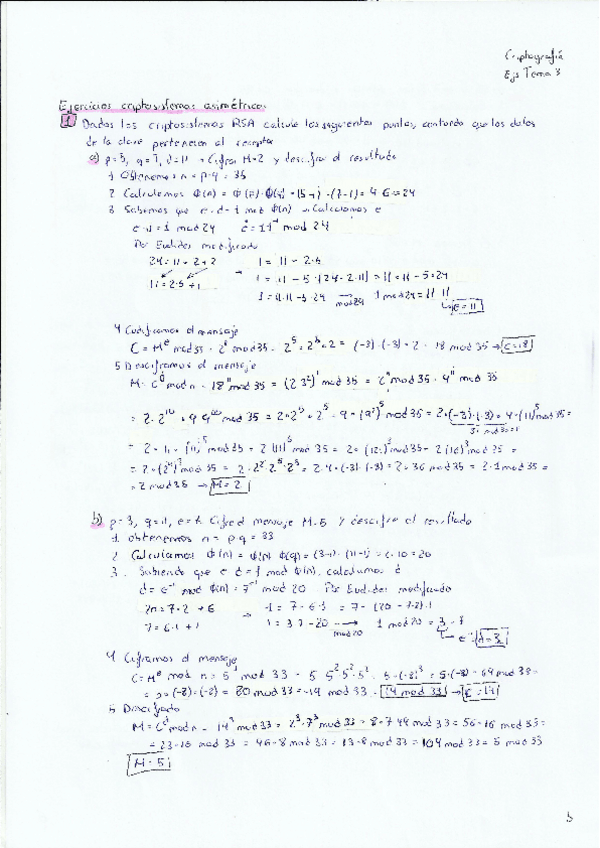 Criptografía
Ejs Tema 3
Ejercicios criptosistemas asimétricos
1 Dados los criptosistemas RSA calcule los siguientes puntos, contando que los datos
de la clave pertenecen al receptor
a) p=5, q=7, d=11 → Cifrar M=2 y descifrar el resultado
1 Obtenemos n = p·q = 35
2 Calculamos Φ(n) = Φ(p)·Φ(q) = (5-1)·(7-1) = 4·6 = 24
3 Sabemos que e·d = 1 mod Φ(n) → Calculamos e
e·11 = 1 mod 24 e = 11⁻¹ mod 24
Por Euclides modificado
24 = 11·2+2 1 = 11 - 2·5
11 = 2·5+1 → 1 = 11 - 5·(24-2·11) = 11·11 - 5·24
1 = 11·11 - 5·24 mod 24 1 mod 24 = 11·11
e = 11
4 Codificamos el mensaje
C = Mᵉ mod 35 = 2¹¹ mod 35 = 2⁵·2⁵·2 = (-3)·(-3)·2 = 18 mod 35 → C=18
5 Desciframos el mensaje
M = Cᵈ mod n = 18¹¹ mod 35 = (2·3²)¹¹ mod 35 = 2¹¹ mod 35 · 9¹¹ mod 35
= 2·2¹⁰·9·9¹⁰ mod 35 = 2·2⁵·2⁵·9·(9²)⁵ mod 35 = 2·(-3)·(-3)·9·(11)⁵ mod 35 =
mod 35 =
= 2 mod 35 → M=2
b) p=3, q=11, e=7. Cifre el mensaje M=5 y descifre el resultado
1 Obtenemos n = p·q = 33
2 Calculamos Φ(n) = Φ(p)·Φ(q) = (3-1)·(11-1) = 2·10 = 20
3. Sabiendo que e·d = 1 mod Φ(n), calculamos d
d = e⁻¹ mod Φ(n) = 7⁻¹ mod 20 Por Euclides modificado
20 = 7·2+6 → 1 = 7-6·1 = 7-(20-7·2)·1
7 = 6·1+1 1 = 3·7-20 mod 20 1 mod 20 = 3·7
d=3
4 Ciframos el mensaje
C = Mᵉ mod n = 5⁷ mod 33 = 5·5²·5²·5² = 5·(-8)³ = 5·(-8)·64 mod 33 =
mod 33 = -19 mod 33 = 14 mod 33 → C=14
5 Descifrado
M = Cᵈ mod n = 14³ mod 33 = 2³·7³ mod 33 = 8·7·49 mod 33 = 56·16 mod 33 =
= 23·16 mod 33 = 46·8 mod 33 = 13·8 mod 33 = 104 mod 33 = 5 mod 33
M=5